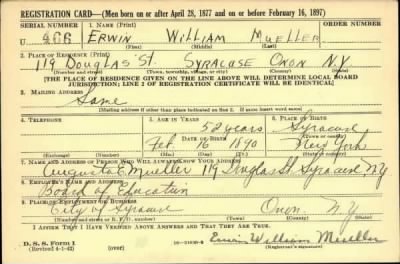 REGISTRATION CARD—(Men born on or after April 28, 1877 and on or before February 16, 1897)
SERIAL NUMBER 1. NAME (Print) ORDER NUMBER
U 466 ERWIN WILLIAM MUELLER
(First) (Middle) (Last)
2. PLACE OF RESIDENCE (Print)
119 DOUGLAS ST. SYRACUSE ONON N.Y.
(Number and street) (Town, township, village, or city) (County) (State)
[THE PLACE OF RESIDENCE GIVEN ON THE LINE ABOVE WILL DETERMINE LOCAL BOARD
JURISDICTION; LINE 2 OF REGISTRATION CERTIFICATE WILL BE IDENTICAL]
3. MAILING ADDRESS
Same
[Mailing address if other than place indicated on line 2. If same insert word same]
4. TELEPHONE 5. AGE IN YEARS 6. PLACE OF BIRTH
52 years Syracuse
DATE OF BIRTH (Town or county)
Feb 16 1890 New York
(Exchange) (Number) (Mo.) (Day) (Yr.) (State or country)
7. NAME AND ADDRESS OF PERSON WHO WILL ALWAYS KNOW YOUR ADDRESS
Augusta E Mueller 119 Douglas St Syracuse N.Y
8. EMPLOYER'S NAME AND ADDRESS
Board of Education
9. PLACE OF EMPLOYMENT OR BUSINESS
City of Syracuse Onon. N.Y
(Number and street or R. F. D. number) (Town) (County) (State)
I AFFIRM THAT I HAVE VERIFIED ABOVE ANSWERS AND THAT THEY ARE TRUE.
D. S. S. Form 1
(Revised 4-1-42) (over) Erwin William Mueller
(Registrant's signature)